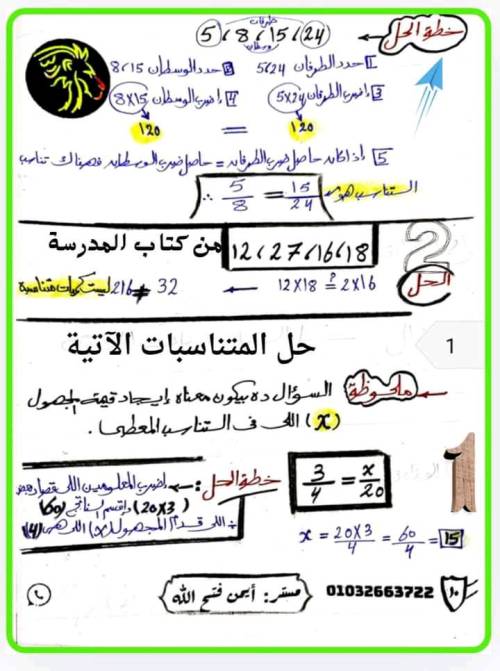 خطة الحل
طرفان
5، 8، 15، 24
وسطان
1 حدد الطرفان 24، 5
2 حدد الوسطان 15، 8
3 اضرب الطرفان 5×24
4 اضرب الوسطان 8×15
120 = 120
5 إذا كان حاصل ضرب الطرفان = حاصل ضرب الوسطان فهناك تناسب
التناسب هو
∴ 5/8 = 15/24
2
12، 27، 16، 18 من كتاب المدرسة
الحل
12×18 ≟ 2×16 ← 32 ≠ 216 ليست كميات متناسبة
حل المتناسبات الآتية
1
ملحوظة السؤال ده بيكون معناه إيجاد قيمة المجهول
(x) اللي في التناسب المعطى.
1
3/4 = x/20
خطة الحل: اضرب المعلومين اللي قصاد بعض
(20×3) واقسم الناتج (60)
÷ اللي قدام المجهول (x) اللي هي (4)
x = 20×3/4 = 60/4 = 15
مستر: أيمن فتح الله
01032663722
١٠